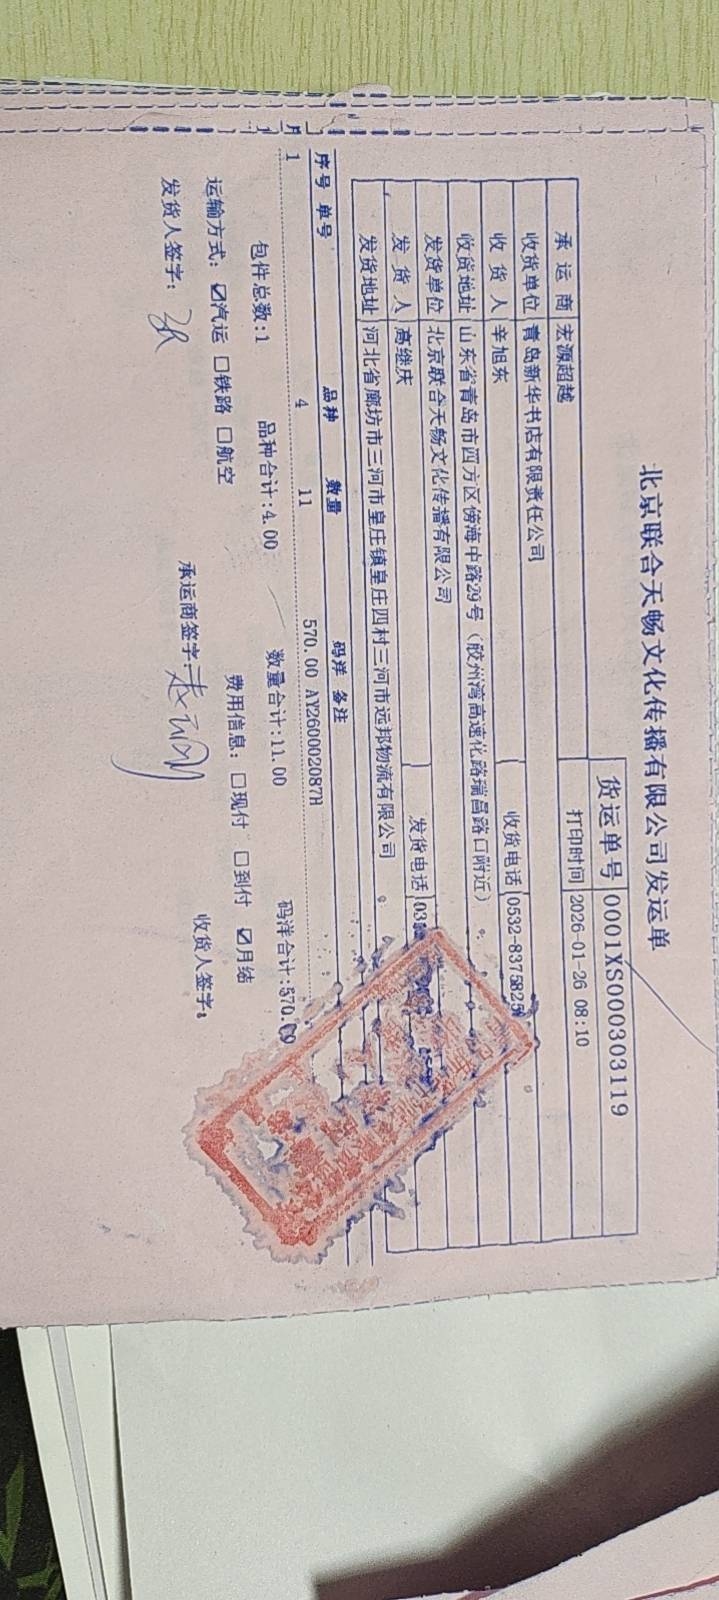 北京联合天畅文化传播有限公司发运单
货运单号 0001XS000303119
承运商 宏源超越 打印时间 2026-01-26 08:10
收货单位 青岛新华书店有限责任公司
收货人 辛旭东 收货电话 0532-8375825
收货地址 山东省青岛市四方区傍海中路29号（胶州湾高速化路瑞昌路口附近）。
发货单位 北京联合天畅文化传播有限公司
发货人 高继庆 发货电话
发货地址 河北省廊坊市三河市皇庄镇皇庄四村三河市远邦物流有限公司。
序号 单号 品种 数量 码洋 备注
1 4 11 570.00 AY260002087H
包件总数:1 品种合计:4.00 数量合计:11.00 码洋合计:570.00
运输方式: ☑汽运 □铁路 □航空 费用信息: □现付 □到付 ☑月结
发货人签字: 承运商签字: 收货人签字: